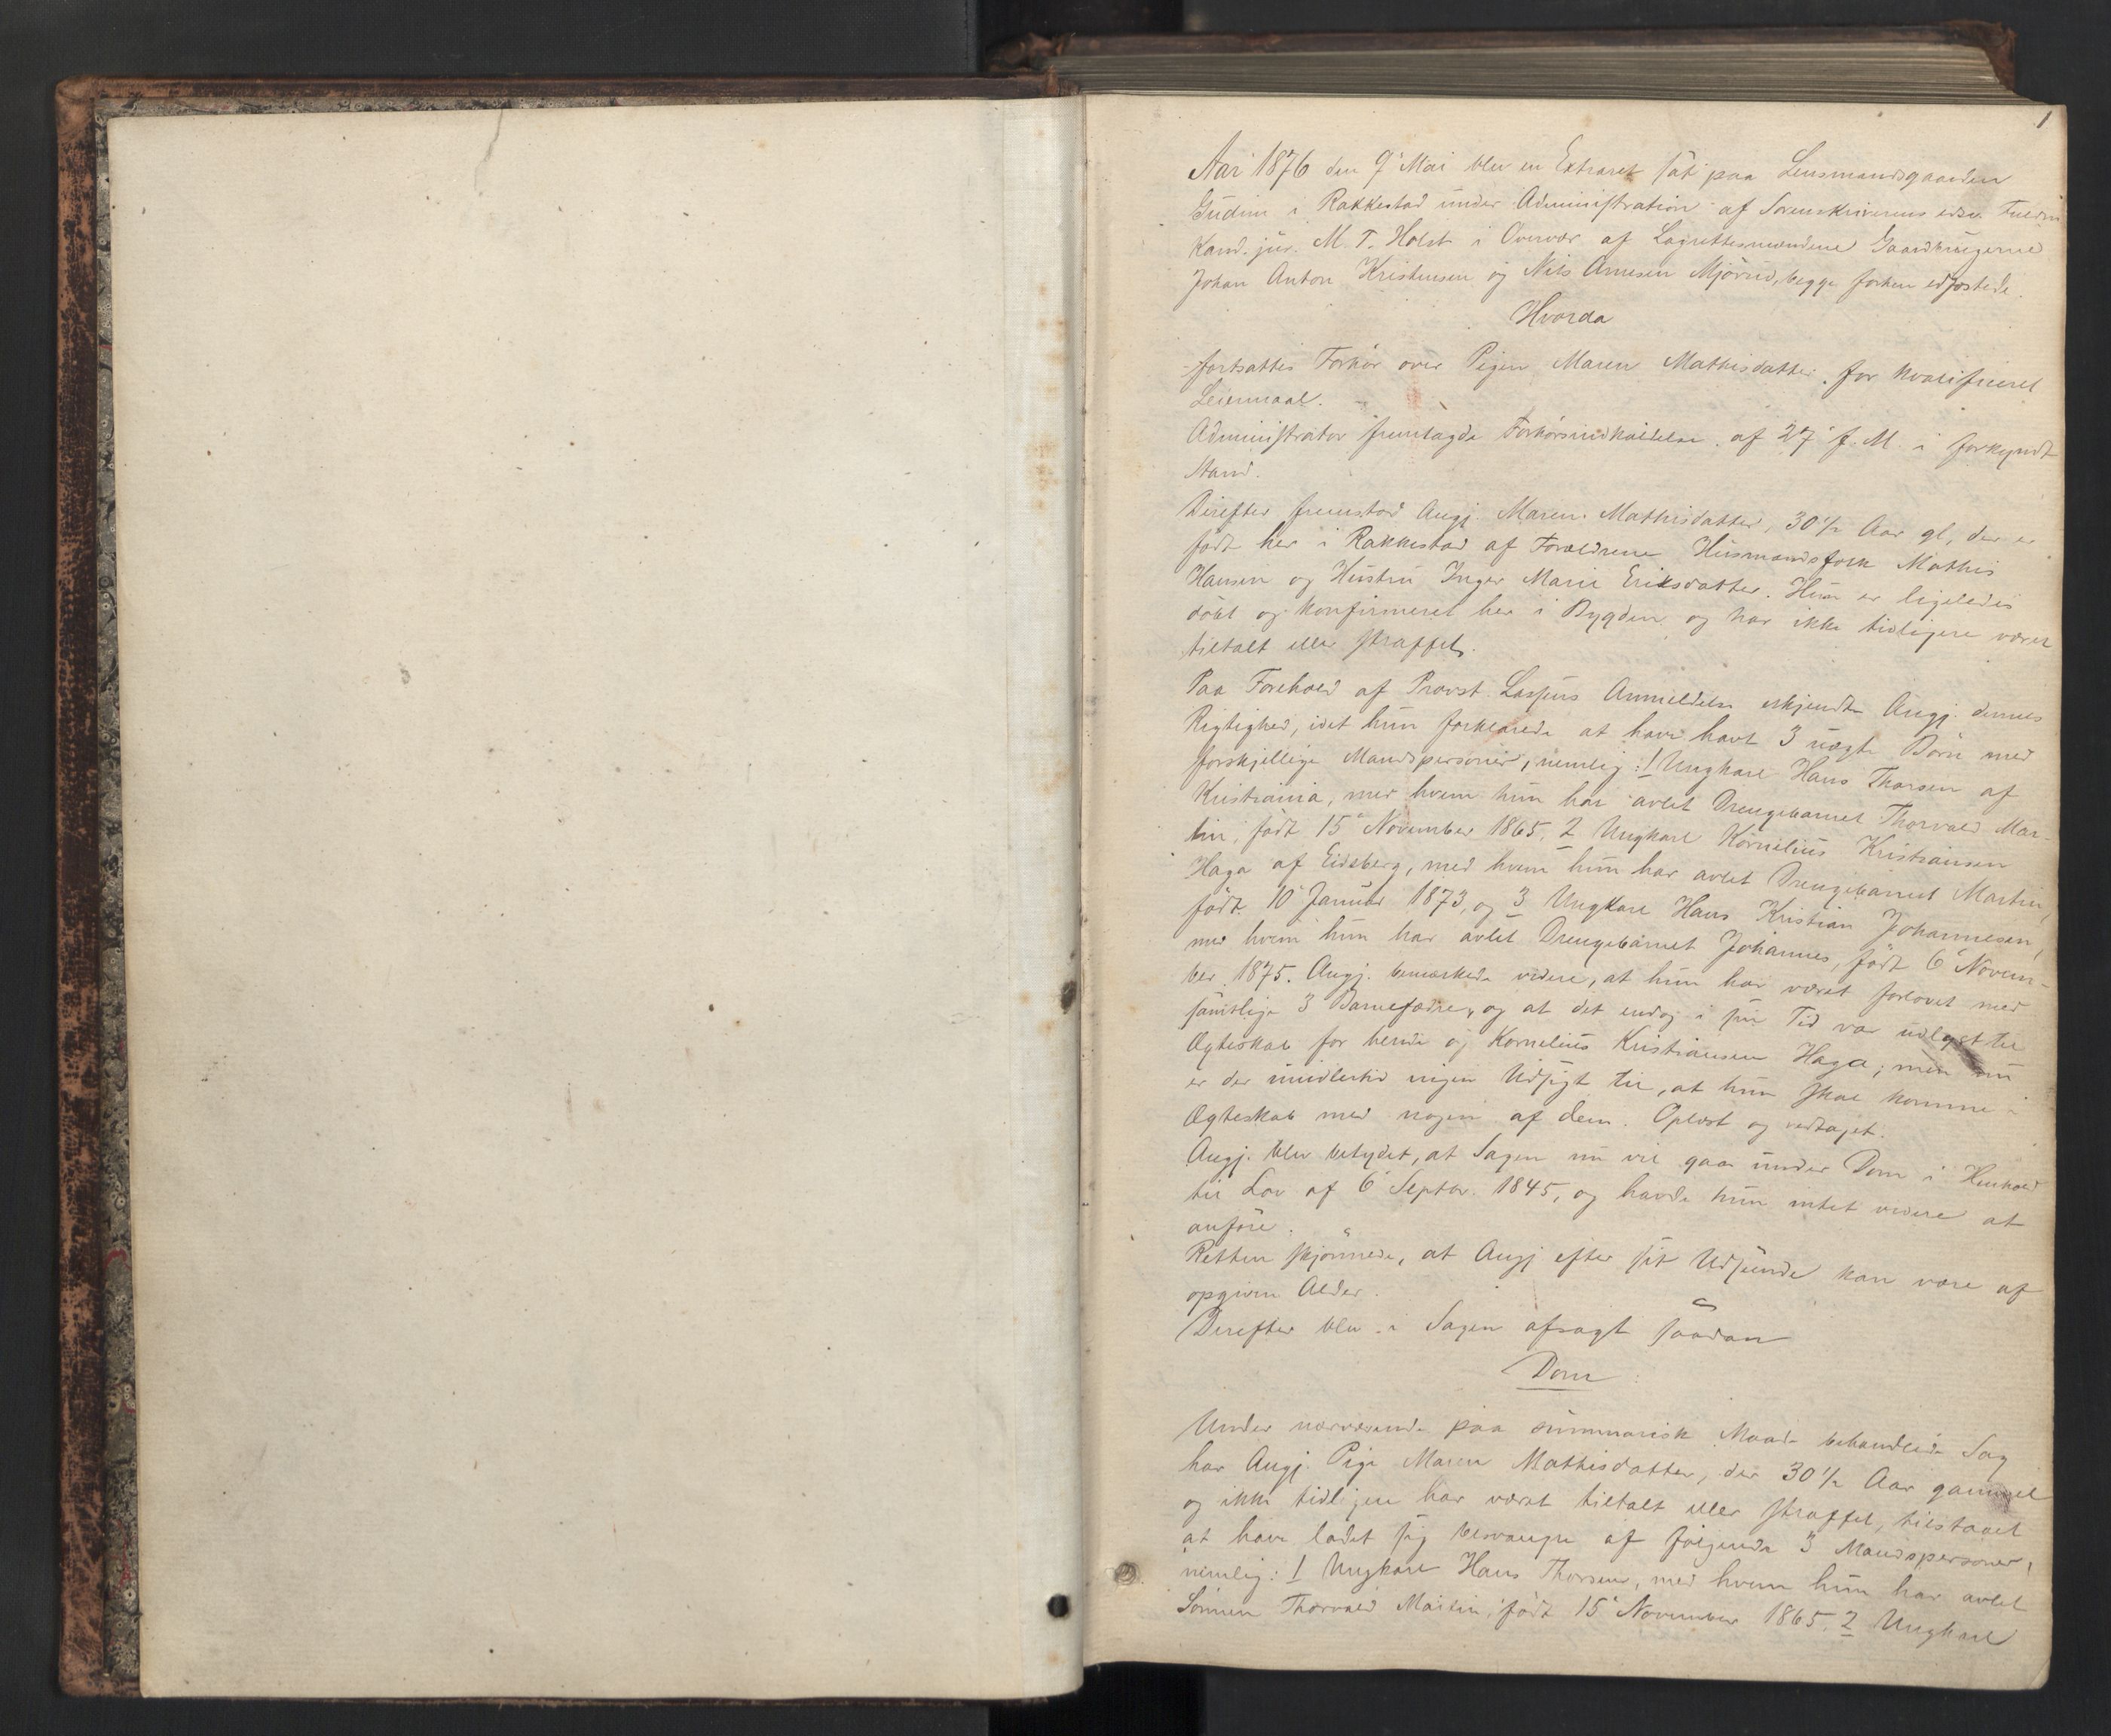 1
Aar 1876 den 9de Mai blev en Extraret sat paa Lensmandsgaarden
Gudim i Rakkestad under Administration af Sorenskriverens edsv. Fuldm.
Kand. jur. M. T. Holst i Overvær af Lagrettesmændene Gaardbrugerne
Johan Anton Kristensen og Nils Arnesen Mjørud, begge forhen edfæstede.
Hvorda
fortsattes Forhør over Pigen Maren Mathisdatter for kvalificeret
Leiermaal.
Administrator fremlagde Forhørsindkaldelse af 27 f. M. i forkyndt
Stand.
Derefter fremstod Angj. Maren Mathisdatter, 30 1/2 Aar gl, der er
født her i Rakkestad af Forældrene Husmandsfolk Mathis
Hansen og Hustru Inger Marie Eriksdatter. Hun er ligeledes
døbt og konfirmeret her i Bygden og har ikke tidligere været
tiltalt eller straffet.
Paa Forehold af Provst Lassens Anmeldelse erkjendte Angj. dennes
Rigtighed, idet hun forklarede at have havt 3 uægte Børn med
forskjellige Mandspersoner, nemlig: 1 Ungkarl Hans Thorsen af
Kristiania, med hvem hun har avlet Drengebarnet Thorvald Mar-
tin, født 15de November 1865, 2 Ungkarl Kornelius Kristiansen
Haga af Eidsberg, med hvem hun har avlet Drengebarnet Martin,
født 10de Januar 1873, og 3 Ungkarl Hans Kristian Johannesen,
med hvem hun har avlet Drengebarnet Johannes, født 6te Novem-
ber 1875. Angj. bemærkede videre, at hun har været forlovet med
samtlige 3 Barnefædre, og at det endog i sin Tid var udlyst til
Ægteskab for hende og Kornelius Kristiansen Haga; men nu
er der imidlertid ingen Udsigt til, at hun skal komme i
Ægteskab med nogen af dem. Oplæst og vedtaget.
Angj. blev betydet, at Sagen nu vil gaa under Dom i Henhold
til Lov af 6te Septbr. 1845, og havde hun intet videre at
anføre.
Retten skjønnede, at Angj efter sit Udseende kan være af
opgiven Alder.
Derefter blev i Sagen afsagt saadan
Dom
Under nærværende paa summarisk Maade behandlede Sag
har Angj. Pige Maren Mathisdatter, der 30 1/2 Aar gammel
og ikke tidligere har været tiltalt eller straffet, tilstaaet
at have ladet sig besvangre af følgende 3 Mandspersoner,
nemlig: 1 Ungkarl Hans Thorsen, med hvem hun har avlet
Sønnen Thorvald Martin, født 15de November 1865, 2 Ungkarl